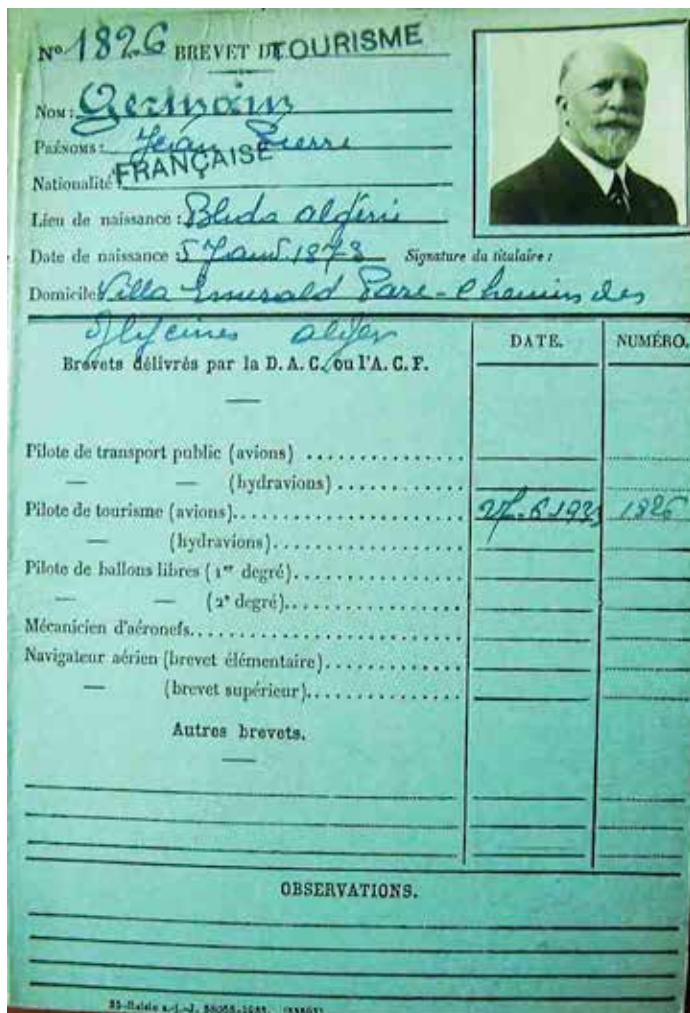 N° 1826 BREVET DE TOURISME
Nom : Germain
Prénoms : Jean Pierre
Nationalité FRANÇAISE
Lieu de naissance : Blida algérie
Date de naissance : 5 Janv. 1873 Signature du titulaire :
Domicile Villa Emerald Parc - Chemin des
Glycines alger
Brevets délivrés par la D. A. C. ou l'A. C. F. DATE. NUMÉRO.
Pilote de transport public (avions)
— — (hydravions)
Pilote de tourisme (avions) 27-6-1933 1826
— (hydravions)
Pilote de ballons libres (1er degré)
— — (2e degré)
Mécanicien d'aéronefs
Navigateur aérien (brevet élémentaire)
— (brevet supérieur)
Autres brevets.
OBSERVATIONS.